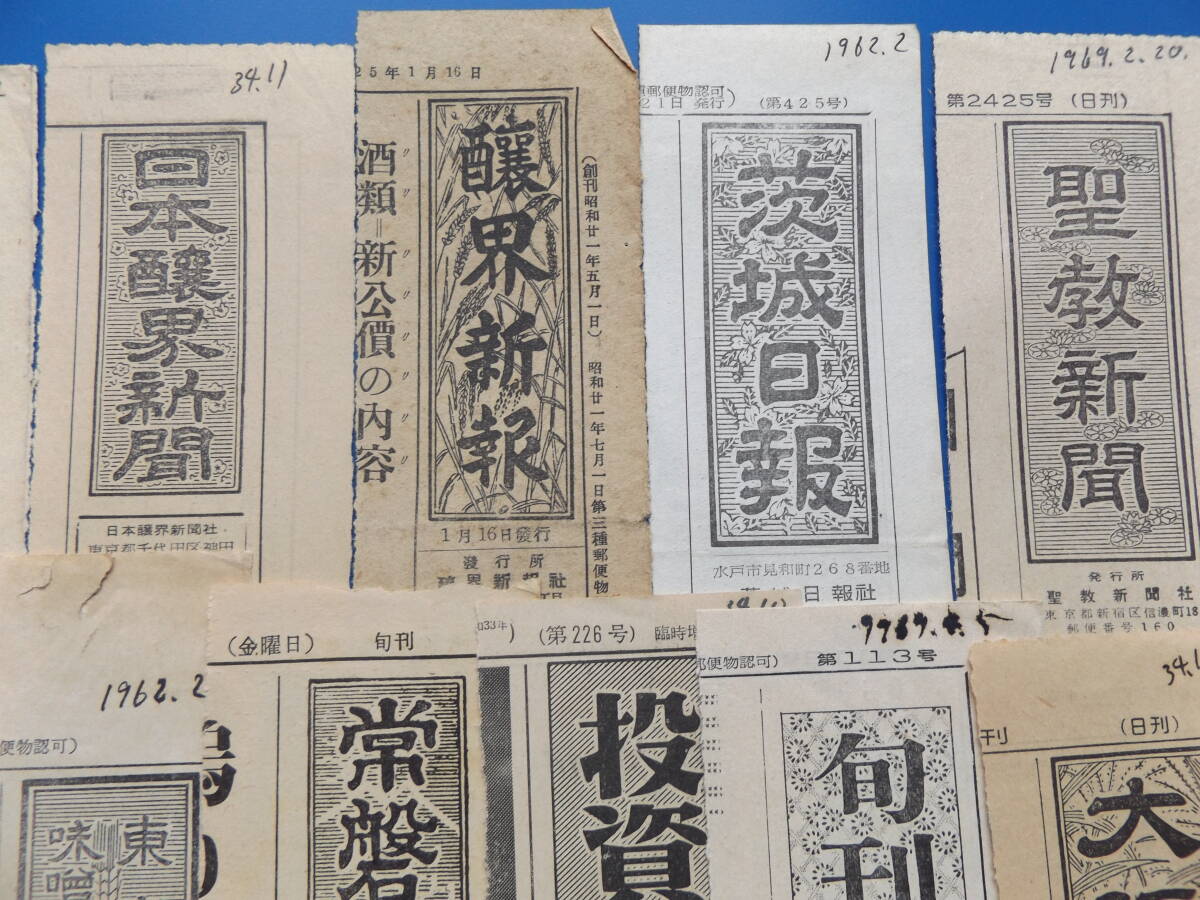 34.11
日本醸界新聞
日本醸界新聞社
東京都千代田区神田
25年1月16日
酒類=新公價の內容
釀界新報
(創刊昭和廿一年五月一日) 昭和廿一年七月一日第三種郵便物
1月16日發行
發行所
釀界新報社
1962.2
郵便物認可)
21日 発行) (第425号)
茨城日報
水戸市見和町268番地
茨城日報社
1969.2.20.
第2425号 (日刊)
聖教新聞
発行所
聖教新聞社
東京都新宿区信濃町18
郵便番号160
1962.2
便物認可)
東
味噌
(金曜日) 旬刊
常磐
33年) (第226号) 臨時増
投資
34.10
郵便物認可) 第113号
旬刊
34.1
刊 (日刊)
大